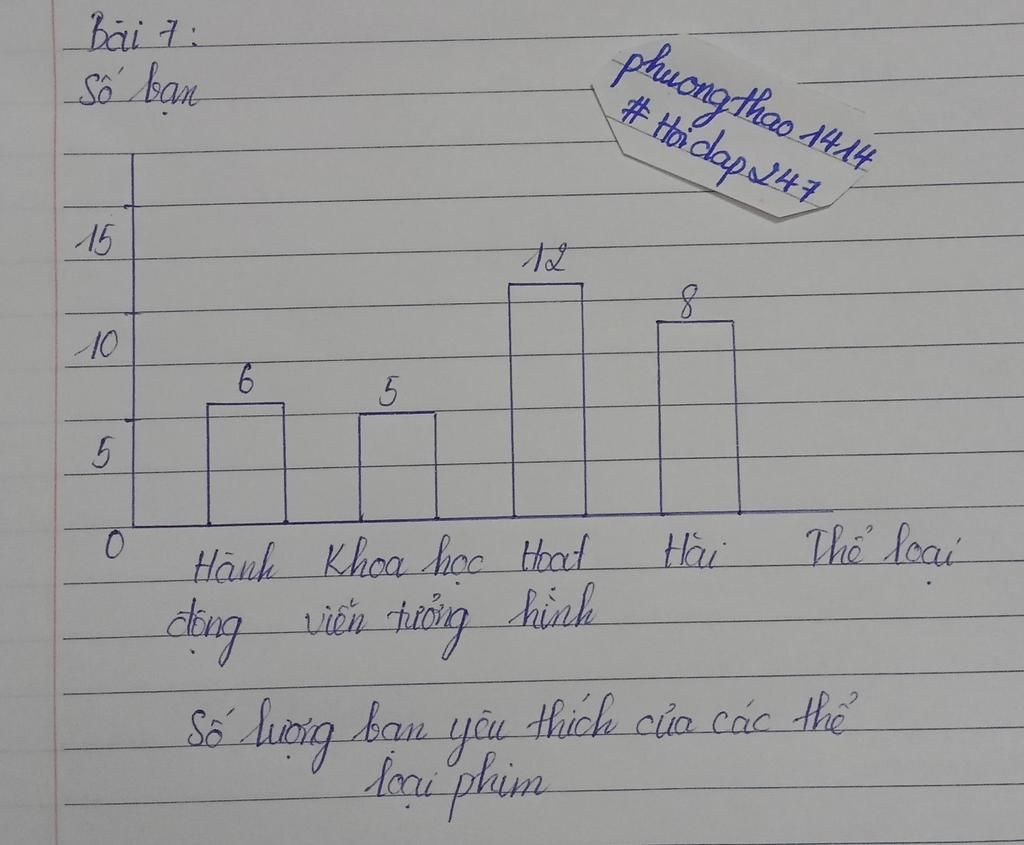 Bài 7:
Số bạn
phuongthao1414
#Hoidap247
15
10
5
0
6
5
12
8
Hành động
Khoa học viễn tưởng
Hoạt hình
Hài
Thể loại
Số lượng bạn yêu thích của các thể
loại phim